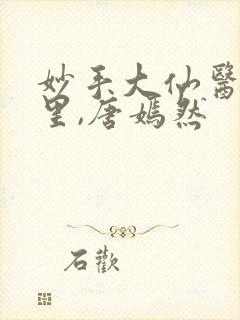 妙手大仙醫
里,唐嫣然
石歡